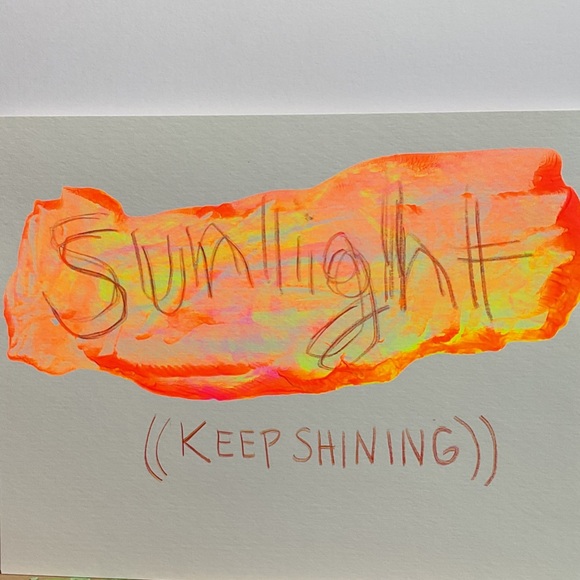 Sunlight
((KEEP SHINING))